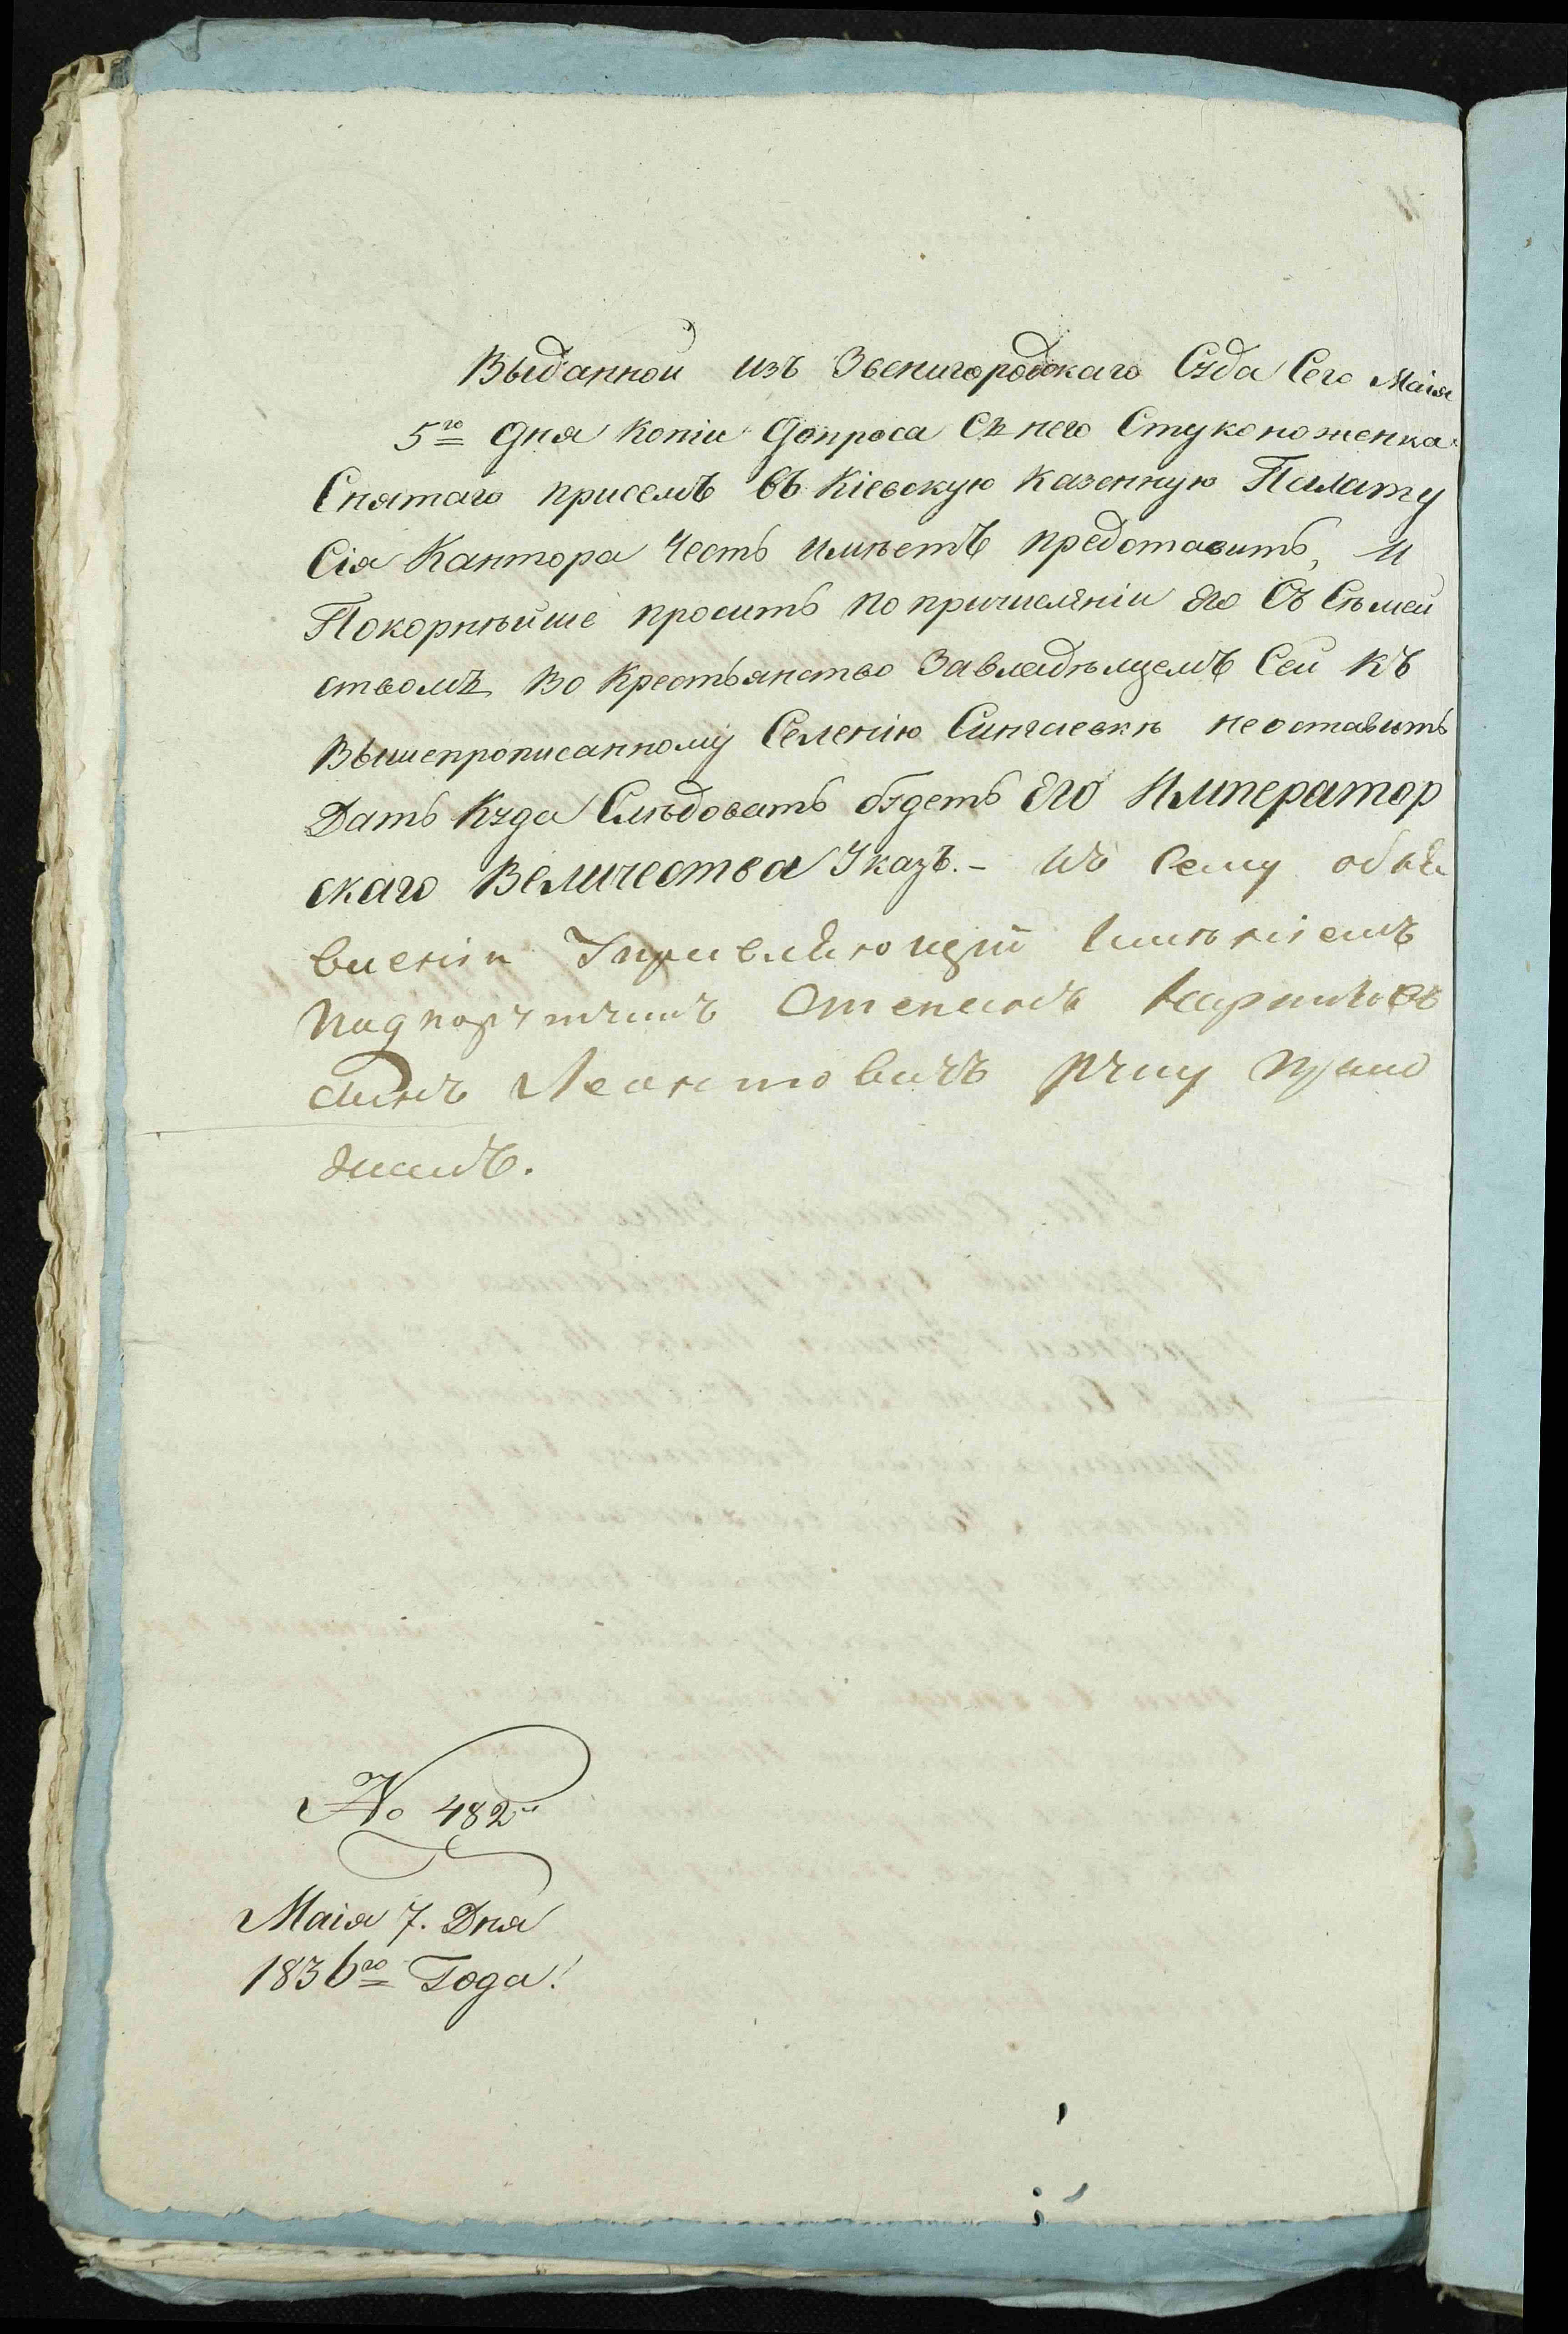 Выданной изъ Звенигородскаго Суда Сего Маія
5го Дня Копіи Допроса Съ него Стуконоженка
Снятаго присемъ въ Кіевскую Казенную Палату
Сія Кантора Честь имѣетъ представить, и
Покорнѣйше просить по причисленіи его Съ Сѣмей
ствомъ во Крестьянство Завладѣлцемъ Сей Къ
Вышепрописанному Селенію неоставить
Дать Куда Слѣдовать будетъ Его Император
скаго Величества Указъ. – Къ Сему объя
вленію Управляющій имѣніемъ
падпоручикъ Степанъ Карповъ
сынъ Леонтовичъ руку прило
жилъ.
№ 482
Маія 7. Дня
1836го Года.